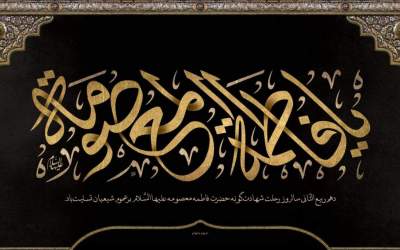 یا فاطمة المعصومة
علیها السلام
دهم ربیع الثانی سالروز رحلت شهادت‌گونه حضرت فاطمه معصومه علیها السّلام بر عموم شیعیان تسلیت باد